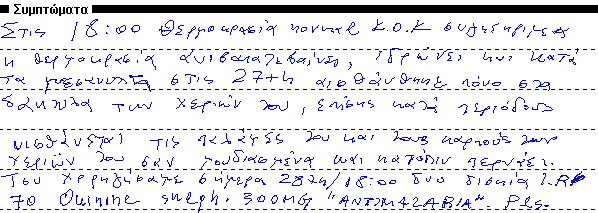 Συμπτώματα
Στις 18:00 θερμοκρασία κανονικά Κ.Ο.Κ συγκεκριμενα
η θερμοκρασία ανεβοκατεβαίνει, Ιδρώνει και κατά
τα μεσανυχτα στις 27th αισθάνθηκε πόνο στα
δάκτυλα των χεριών του, επίσης κατά περιόδους
αισθάνεται τις παλάμες του και τους καρπούς των
χεριών του σαν μουδιασμένα και κατόπιν περνάει.
Του χορηγήσαμε σήμερα 28th/18:00 δυο δισκία
Quinine sulph. 300MG "ANTIMALARIA". Pls.